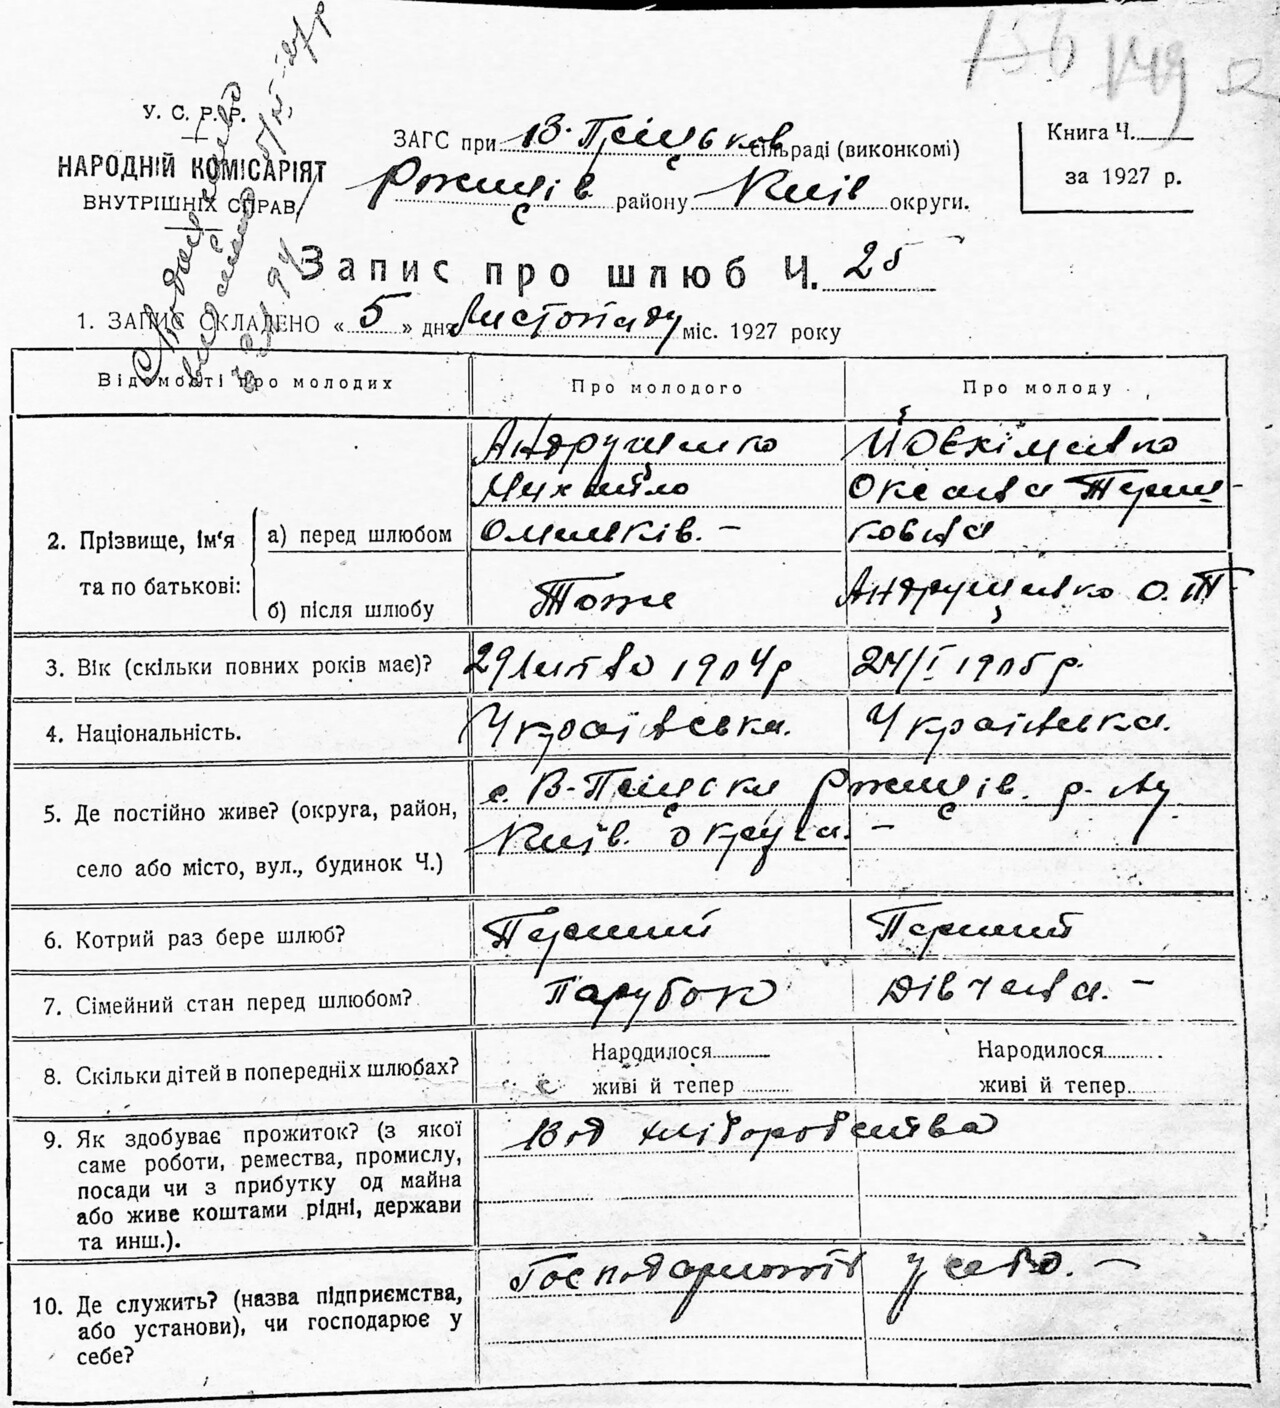 У. С. Р. Р.
НАРОДНІЙ КОМІСАРІЯТ
ВНУТРІШНІХ СПРАВ
ЗАГС при В. Пріцьков сільраді (виконкомі)
Ржищів району Київ округи.
Книга Ч.
за 1927 р.
Запис про шлюб Ч. 25
1. ЗАПИС СКЛАДЕНО « 5 » дня Листопаду міс. 1927 року
Відомості про молодих
Про молодого
Про молоду
2. Прізвище, ім'я та по батькові:
а) перед шлюбом
Андрущенко
Михайло
Омельків. -
Йовхіменко
Оксана Тереш-
ковна
б) після шлюбу
Тоже
Андрущенко О. Т
3. Вік (скільки повних років має)?
29 1904 р
24/I 1905 р.
4. Національність.
Українська.
Українська.
5. Де постійно живе? (округа, район,
село або місто, вул., будинок Ч.)
с. В-Пріцьки Ржищів. р-ну
Київ. округи. -
6. Котрий раз бере шлюб?
Перший
Перший
7. Сімейний стан перед шлюбом?
Парубок
Дівчина. -
8. Скільки дітей в попередніх шлюбах?
Народилося
живі й тепер
Народилося
живі й тепер
9. Як здобуває прожиток? (з якої
саме роботи, ремества, промислу,
посади чи з прибутку од майна
або живе коштами рідні, держави
та инш.).
Від хліборобства
10. Де служить? (назва підприємства,
або установи), чи господарює у
себе?
у себе. -